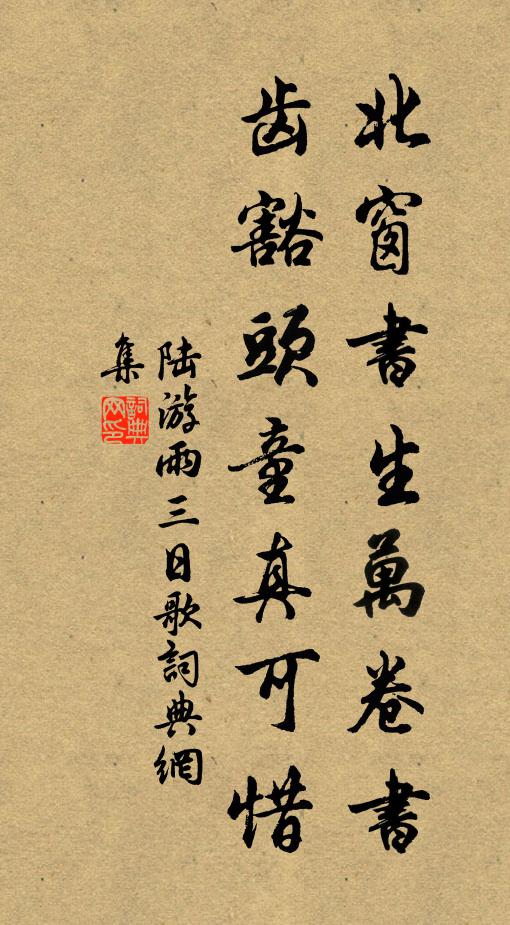 北窗書生萬卷書
齿豁頭童真可惜
陆游雨三日歌詞典網
集
詞典网印